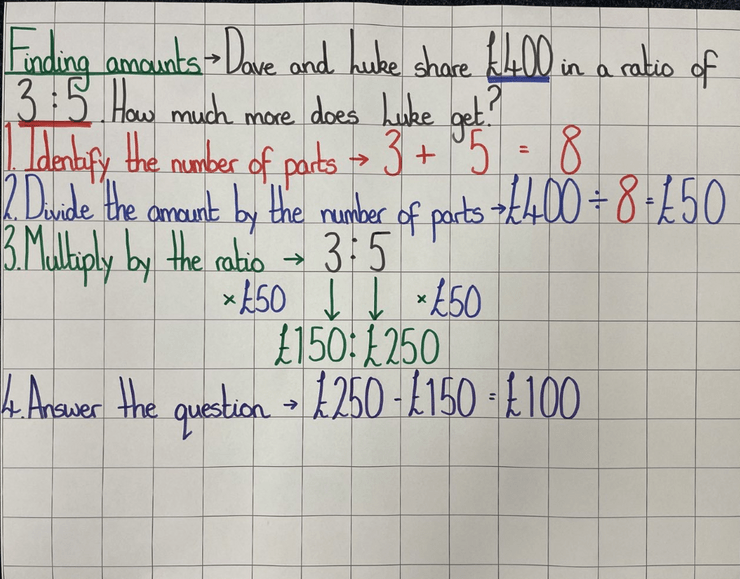 Finding amounts → Dave and Luke share £400 in a ratio of
3:5. How much more does Luke get?
1. Identify the number of parts → 3 + 5 = 8
2. Divide the amount by the number of parts → £400 ÷ 8 = £50
3. Multiply by the ratio → 3:5
×£50 ↓ ↓ ×£50
£150:£250
4. Answer the question → £250 - £150 = £100